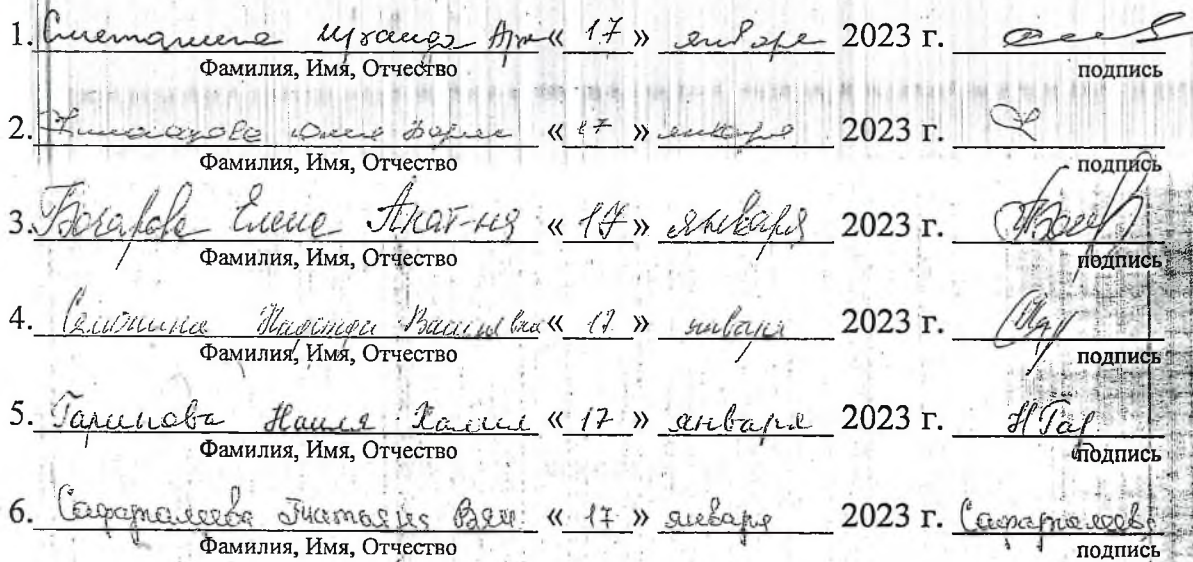 1. Сметанина Ираида « 17 » января 2023 г.
Фамилия, Имя, Отчество подпись
2. « 17 » января 2023 г.
Фамилия, Имя, Отчество подпись
3. Бочарова Елена Анат-на « 17 » января 2023 г.
Фамилия, Имя, Отчество подпись
4. « 17 » января 2023 г.
Фамилия, Имя, Отчество подпись
5. Гарипова Наиля Халил « 17 » января 2023 г. НГар
Фамилия, Имя, Отчество подпись
6. Сафаралеева Татьяна Вяч « 17 » января 2023 г. Сафаралеева
Фамилия, Имя, Отчество подпись